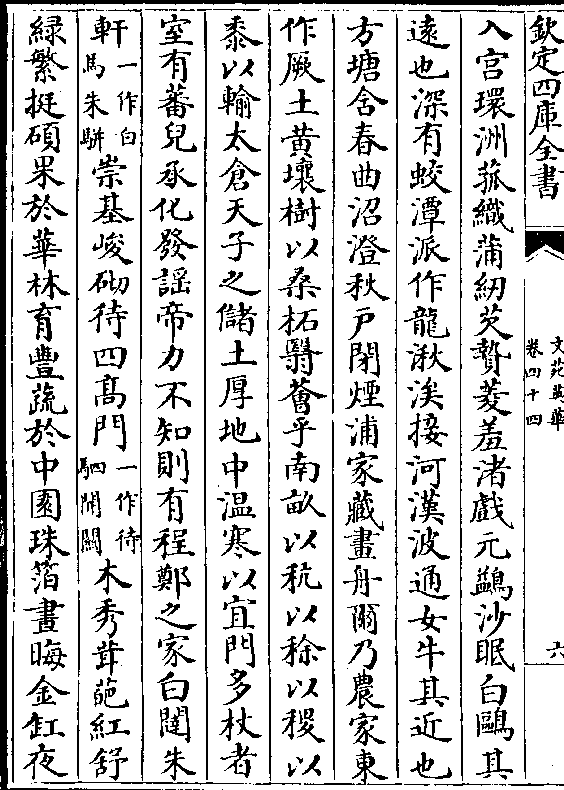 欽定四庫全書
文苑英華
卷四十四
六
入宫環洲菰織蒲紉芡贄菱羞渚戲元鷁沙眠白鷗其
遠也深有蛟潭派作龍湫涘接河漢波通女牛其近也
方塘含春曲沼澄秋戸閉煙浦家藏畫舟爾乃農家東
作厥土黄壤樹以桑柘翳薈乎南畝以秔以稌以稷以
黍以輸太倉天子之儲土厚地中温寒以宜門多杖者
室有蕃兒承化發謡帝力不知則有程鄭之家白闥朱
軒一作白馬朱駢崇基峻砌待四高門一作待駟開闗木秀茸葩紅舒
緑繁挺碩果於華林育豐蔬於中園珠箔晝晦金缸夜